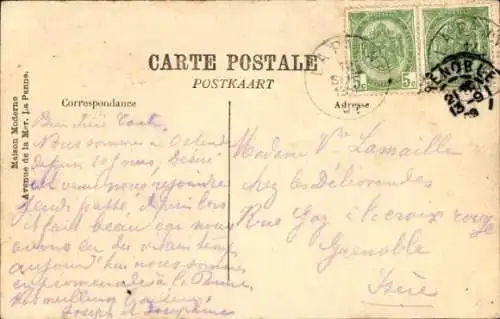 CARTE POSTALE
POSTKAART
Correspondance
Adresse
Maison Moderne
Avenue de la Mer, La Panne.
5c 5c
GRENOBLE
Bien chère Tante,
Nous sommes à Ostende
depuis 10 jours, Désiré
est venu nous rejoindre
jeudi passé, depuis lors
il fait beau car nous
avons eu du vilain temps
aujourd'hui nous sommes
en promenade à la Panne
Nos meilleurs
Joseph et Joséphine
Madame Vve Lamaille
chez les Délivrandes
Rue Gaz à la croix rouge
Grenoble
Isère